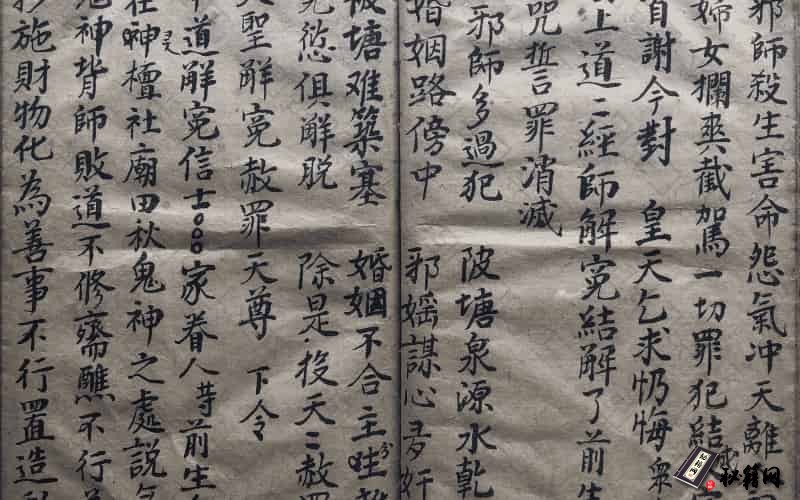 邪師殺生害命怨氣冲天離
婦女攔輿截駕一切罪犯結
首謝今對 皇天乞求忏悔衆
上道二經師解寃結解了前生
咒誓言罪消滅
邪師多過犯 陂塘泉源水乾
婚姻路傍中 邪婬謀心多奸
陂塘难築塞 婚姻不合主
愆俱解脱 除是投天二赦罪
大聖解寃赦罪天尊 下令
中道解寃信士。。。家眷人等前生
在神壇社廟田秋鬼神之處説
鬼神背師敗道不修齋醮不行
抄施財物化為善事不行置造
秘籍网